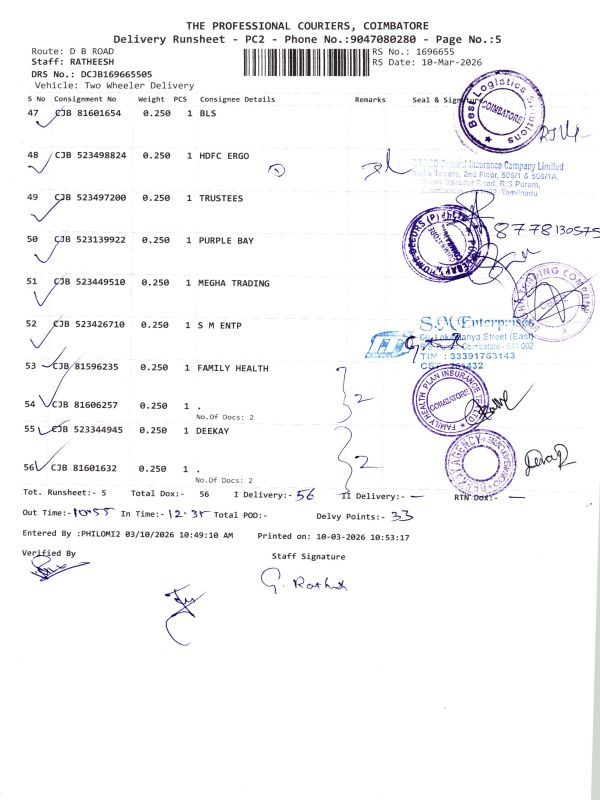 THE PROFESSIONAL COURIERS, COIMBATORE
Delivery Runsheet - PC2 - Phone No.:9047080280 - Page No.:5
Route: D B ROAD
RS No.: 1696655
Staff: RATHEESH
RS Date: 10-Mar-2026
DRS No.: DCJB169665505
Vehicle: Two Wheeler Delivery
S No Consignment No Weight PCS Consignee Details Remarks Seal & Signature
47 CJB 81601654 0.250 1 BLS
Best Logistics Solutions COIMBATORE
48 CJB 523498824 0.250 1 HDFC ERGO
1
General Insurance Company Limited
Towers, 2nd Floor, 508/1 & 508/1A,
Road, R.S.Puram,
Tamilnadu
49 CJB 523497200 0.250 1 TRUSTEES
8778130575
50 CJB 523139922 0.250 1 PURPLE BAY
51 CJB 523449510 0.250 1 MEGHA TRADING
TRADING COMPANY
52 CJB 523426710 0.250 1 S M ENTP
S.M Enterprises
Street (East)
Coimbatore - 641 002
TIN : 33391763143
CST
53 CJB 81596235 1 FAMILY HEALTH
2
FAMILY HEALTH PLAN INSURANCE COIMBATORE
54 CJB 81606257 0.250 1 .
No.Of Docs: 2
55 CJB 523344945 0.250 1 DEEKAY
2
AGENCY
56 CJB 81601632 0.250 1 .
No.Of Docs: 2
Tot. Runsheet:- 5 Total Dox:- 56 I Delivery:- 56 II Delivery:- — RTN Dox:- —
Out Time:- 10:55 In Time:- 12.35 Total POD:- Delvy Points:- 33
Entered By :PHILOMI2 03/10/2026 10:49:10 AM Printed on: 10-03-2026 10:53:17
Verified By
Staff Signature